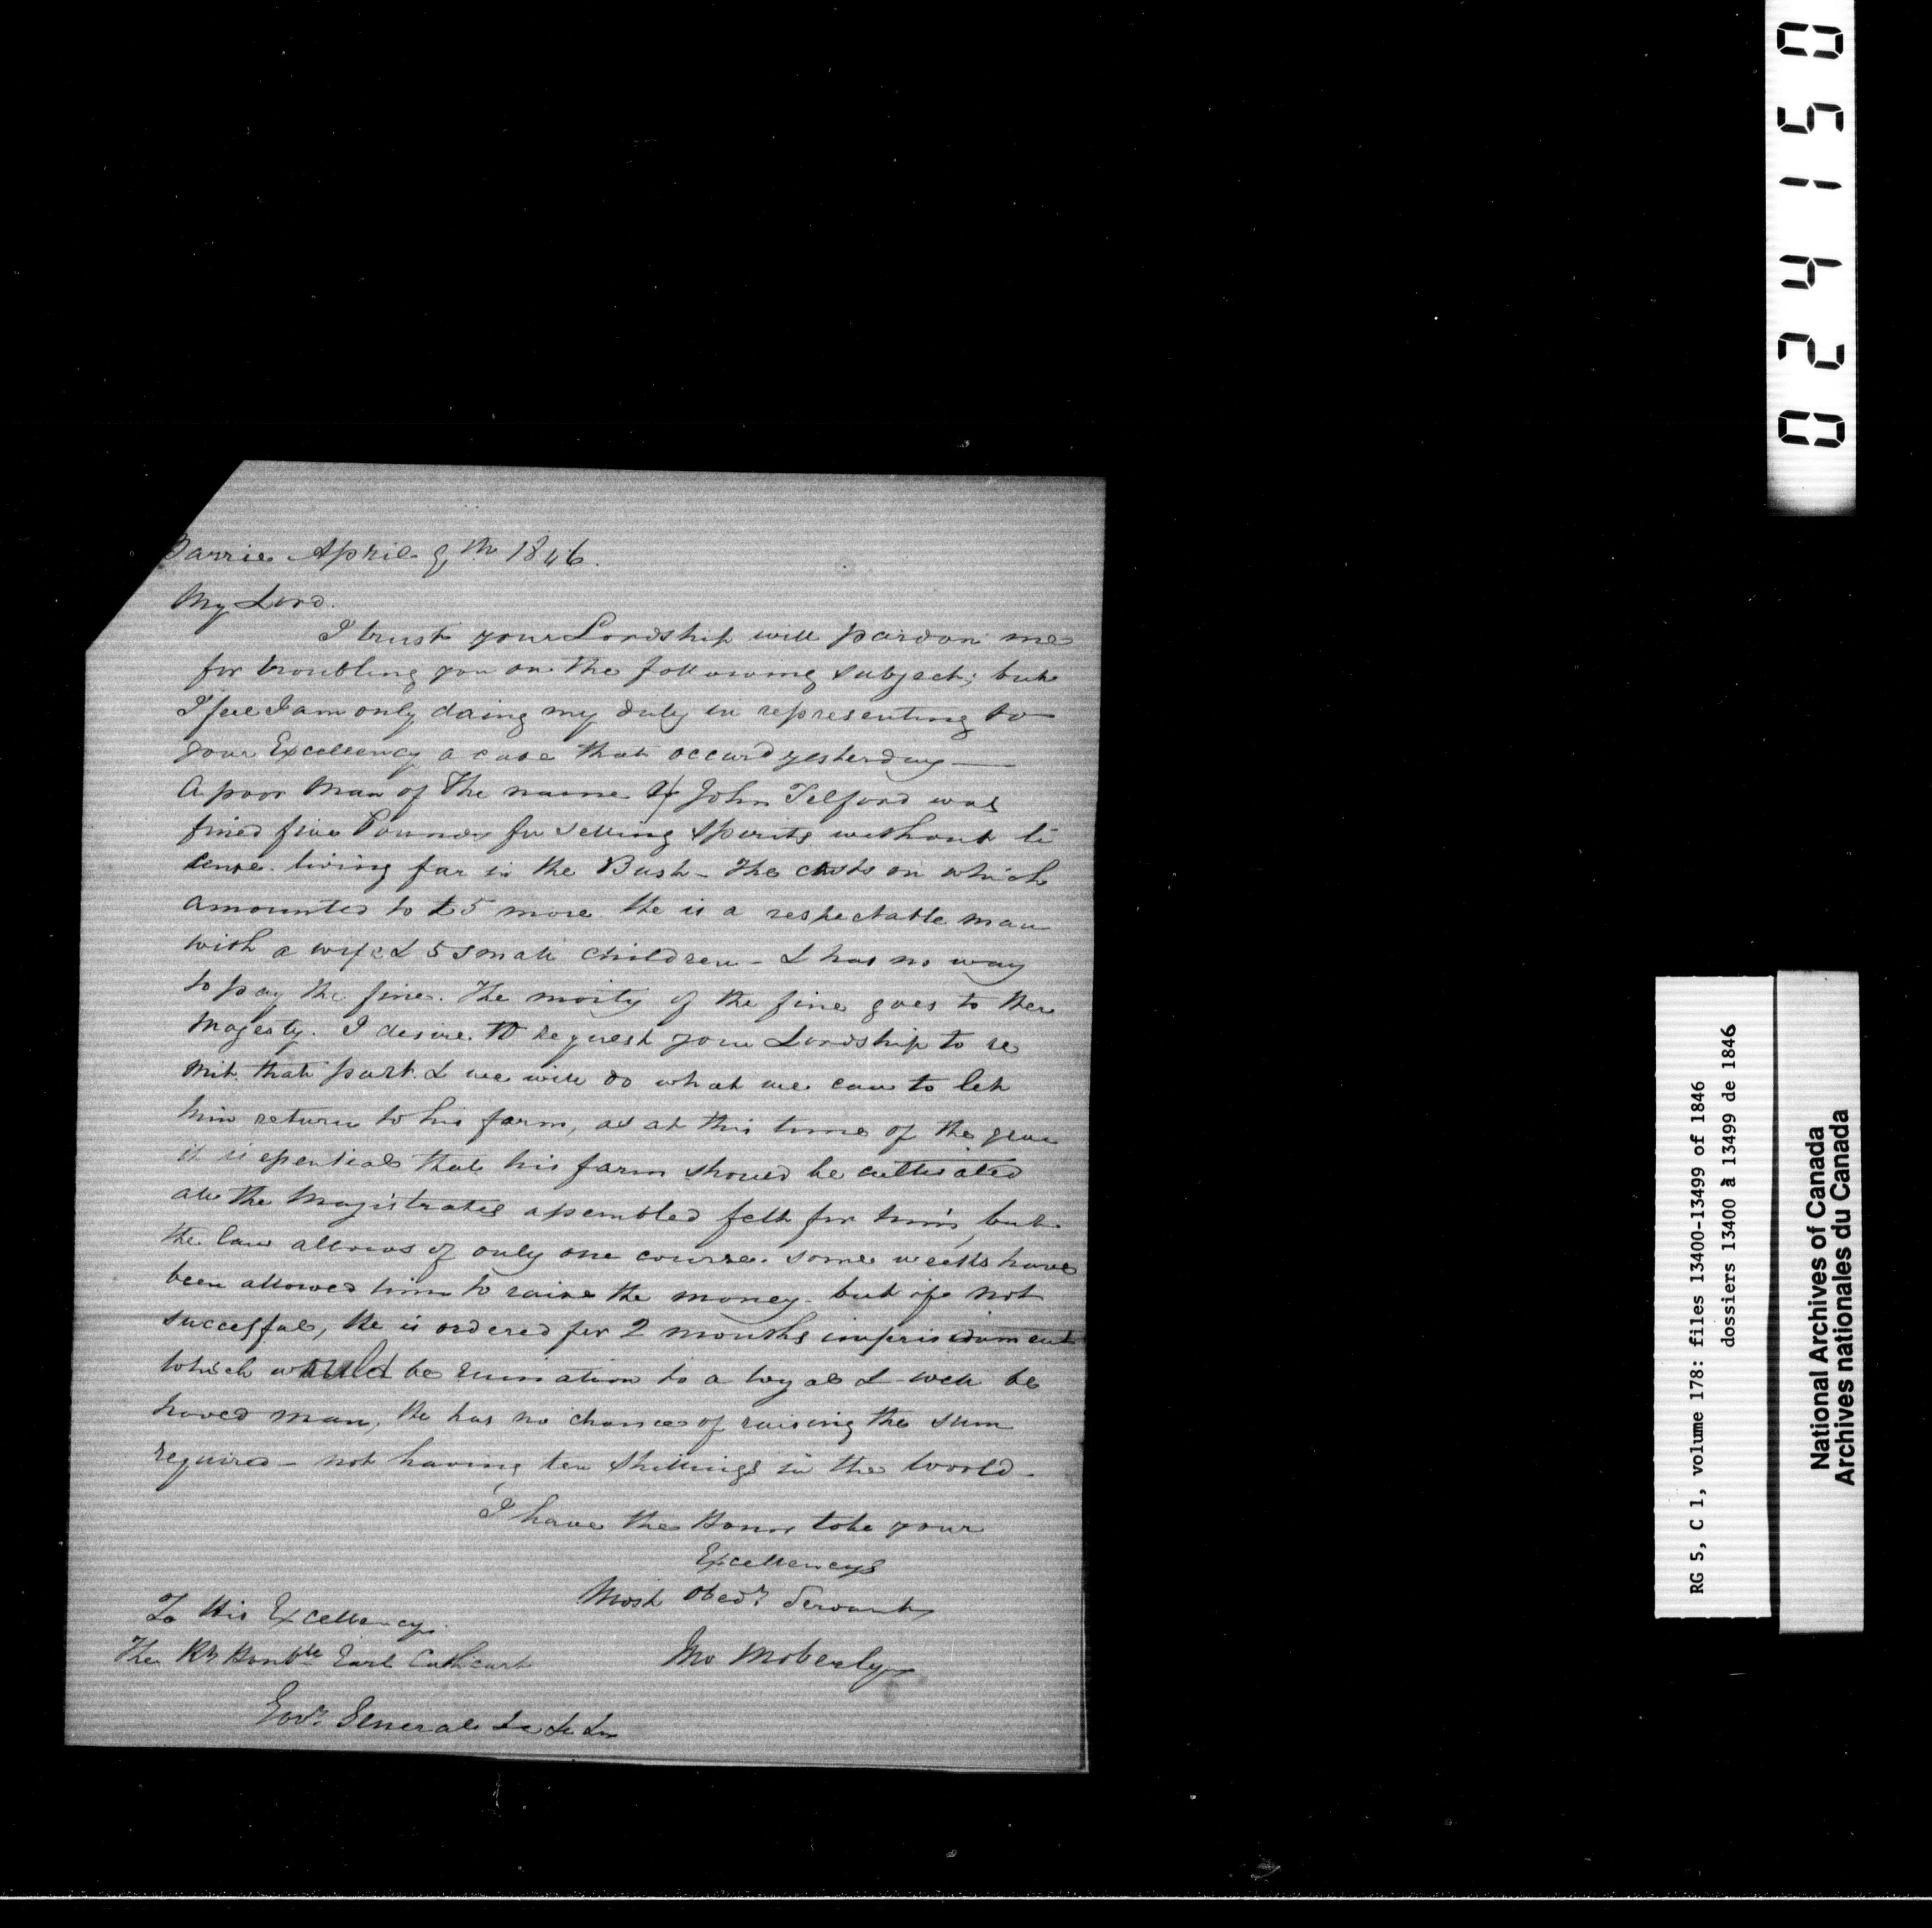 Barrie April 9th 1846.
My Lord.
I trust your Lordship will pardon me
for troubling you on the following subject; but
I feel I am only doing my duty in representing to
your Excellency a case that occurd yesterday —
A poor Man of the name of John Telford was
fined five Pounds for selling spirits without li
cense. living far in the Bush - The costs on which
amounted to £5 more. He is a respectable man
with a wife & 5 small children - & has no way
to pay the fine. The moity of the fine goes to Her
Majesty. I desire to request your Lordship to re
mit that part. & we will do what we can to let
him return to his farm, as at this time of the year
it is essential that his farm should be cultivated
all the Magistrates assembled felt for him, but
the law allows of only one course. some weeks have
been allowed him to raise the money. but if not
successful, He is ordered for 2 months imprisonment
which would be ruination to a loyal & well be
haved man, He has no chance of raising the sum
required - not having ten shillings in the World -
I have the Honor to be your
Excellencys
Most Obedt Servant
Jno Moberly
To His Excellency
The Rt Honble Earl Cathcart
Govr. General &c &c &c
024150
RG 5, C 1, volume 178: files 13400-13499 of 1846
dossiers 13400 à 13499 de 1846
National Archives of Canada
Archives nationales du Canada